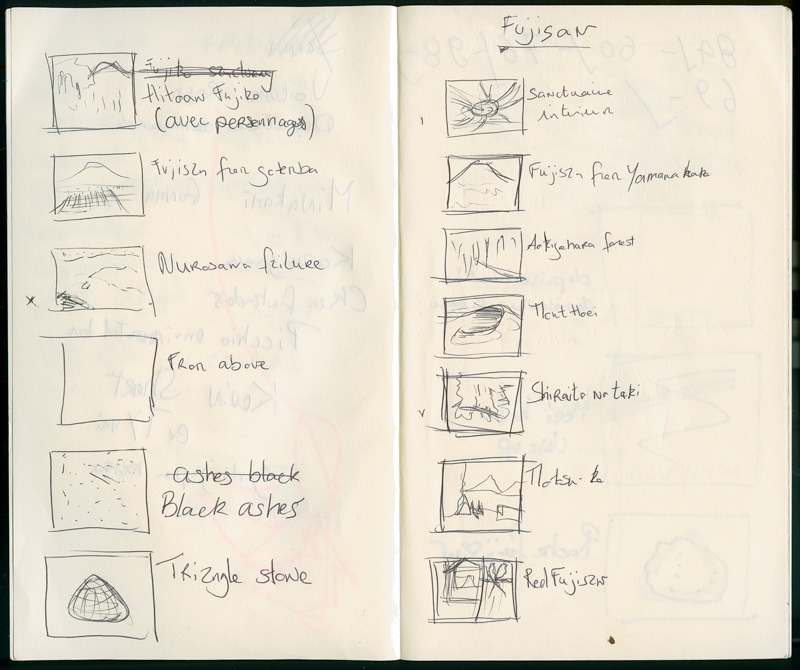 Fujiko sanctuary
Hitoan Fujiko
(avec personnages)
Fujisan from gotemba
Murosawa failure
From above
ashes black
Black ashes
Triangle stone
Fujisan
Sanctuaire
interieur
Fujisan from Yamanakako
Aokigahara forest
Mont Hoei
Shiraito no taki
Motosu-ko
Red Fujisan